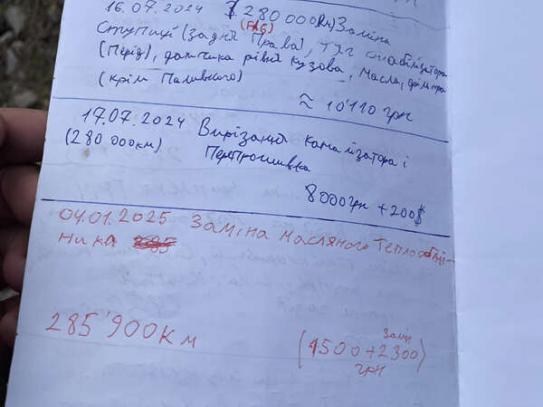 16.07.2024 280 000км Заміна
(FAG)
ступиці (Задня Права), тяг стабілізатора
(Перід), датчика рівня кузова, Масла, фільтра
(крім Паливного)
≈ 10'110 грн
17.07.2024 Вирізання каталізатора і
(280 000км) Перепрошивка
8000грн + 200$
04.01.2025 Заміна масляного Теплообмі-
ника
285'900км
замін
(4500+2300)
грн